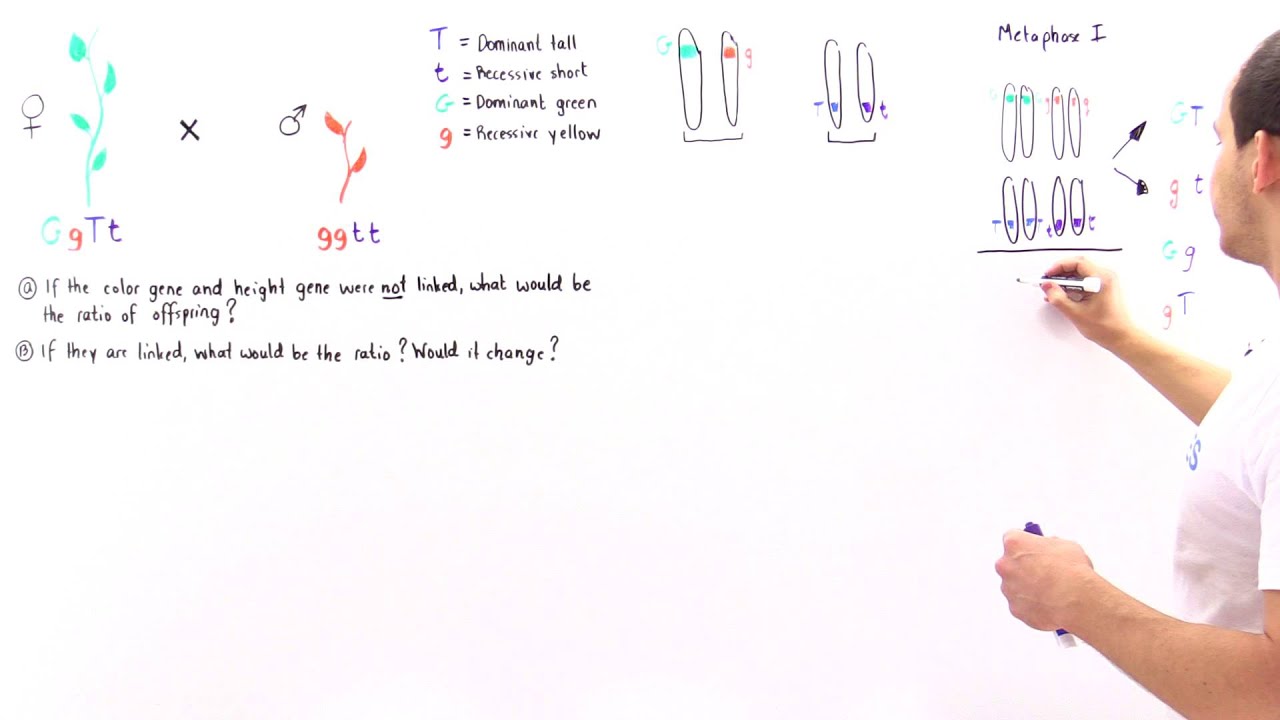 ♀
×
♂
GgTt
ggtt
T = Dominant tall
t = Recessive short
G = Dominant green
g = Recessive yellow
Ⓐ If the color gene and height gene were not linked, what would be
the ratio of offspring?
Ⓑ If they are linked, what would be the ratio? Would it change?
G g
T t
Metaphase I
G G g g
T T t t
GT
g t
G g
g T